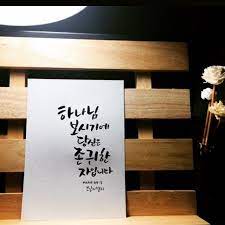 하나님
보시기에
당신은
존귀한
자입니다